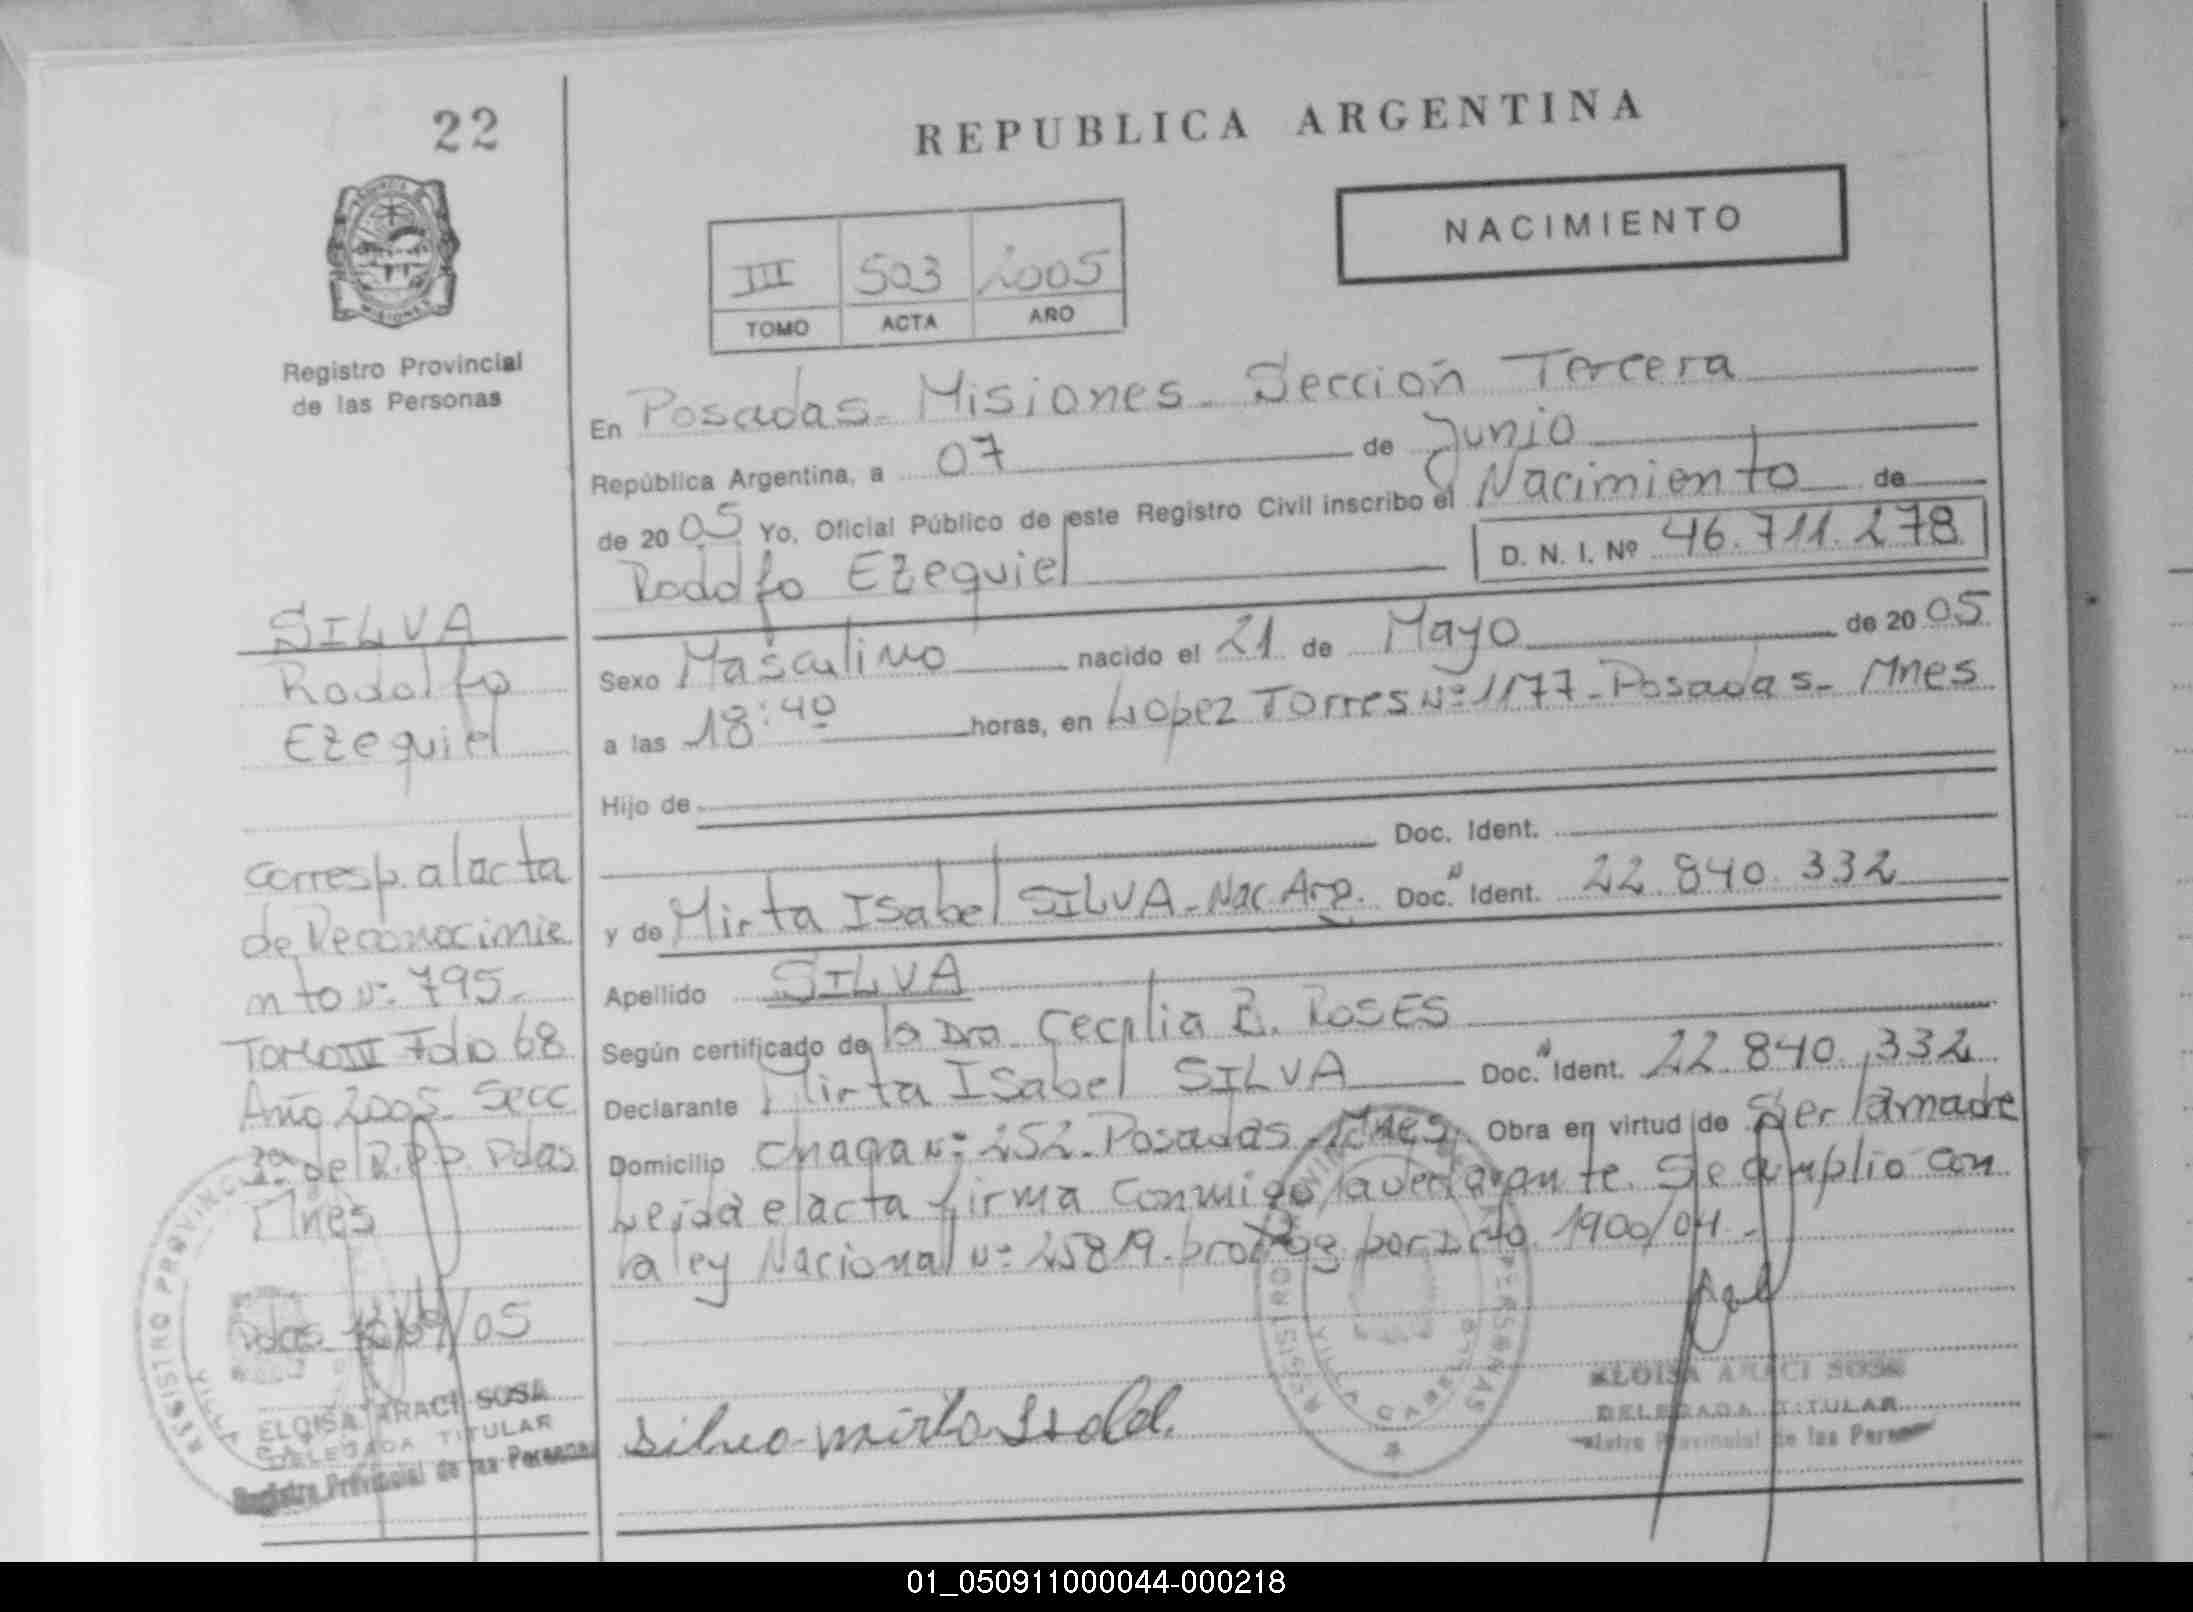 22
REPUBLICA ARGENTINA
NACIMIENTO
III 503 2005
TOMO ACTA AÑO
Registro Provincial
de las Personas
En Posadas - Misiones - Sección Tercera
República Argentina, a 07 de Junio
de 2005 Yo, Oficial Público de este Registro Civil inscribo el Nacimiento de
Rodolfo Ezequiel D. N. I. Nº 46.711.278
Sexo Masculino nacido el 21 de Mayo de 2005
a las 18:40 horas, en Lopez Torres Nº 1177 - Posadas - Mnes
Hijo de
Doc. Ident.
y de Mirta Isabel SILVA - Nac. Arg. Doc. Ident. 22.840.332
Apellido SILVA
Según certificado de la Dra. Cecilia B. ROSES
Declarante Mirta Isabel SILVA Doc. Ident. 22.840.332
Domicilio Chagra Nº 252 - Posadas - Mnes. Obra en virtud de Ser la madre
Leida el acta firma conmigo la declarante. Se amplio con
la ley Nacional Nº 25819 - por Dcto 1900/04 -
Silva mirta Isabel
ELOISA ARACI SOSA
DELEGADA TITULAR
Registro Provincial de las Personas
SILVA
Rodolfo
Ezequiel
Corresp. al acta
de Reconocimie
nto Nº 795 -
Tomo III Folio 68
Año 2005 - Secc
3ª de R.P.P. Pdas
Mnes
Pdas /05
REGISTRO PROVINCIAL
ELOISA ARACI SOSA
DELEGADA TITULAR
Registro Provincial de las Personas
REGISTRO PERSONAS
VILLA CABELLO
01_050911000044-000218